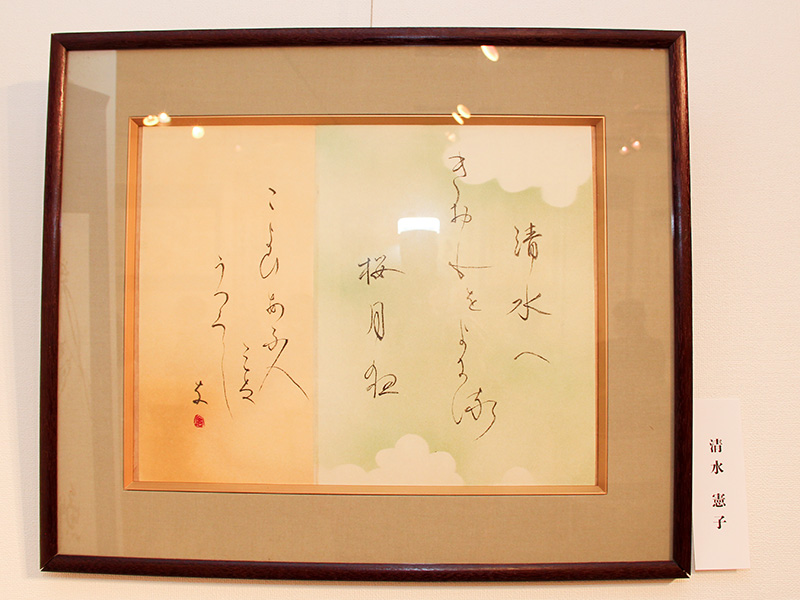 清水へ
きおんをよきる
桜月夜
こよひあふ人
みな
うつくし
き
清水 憲子